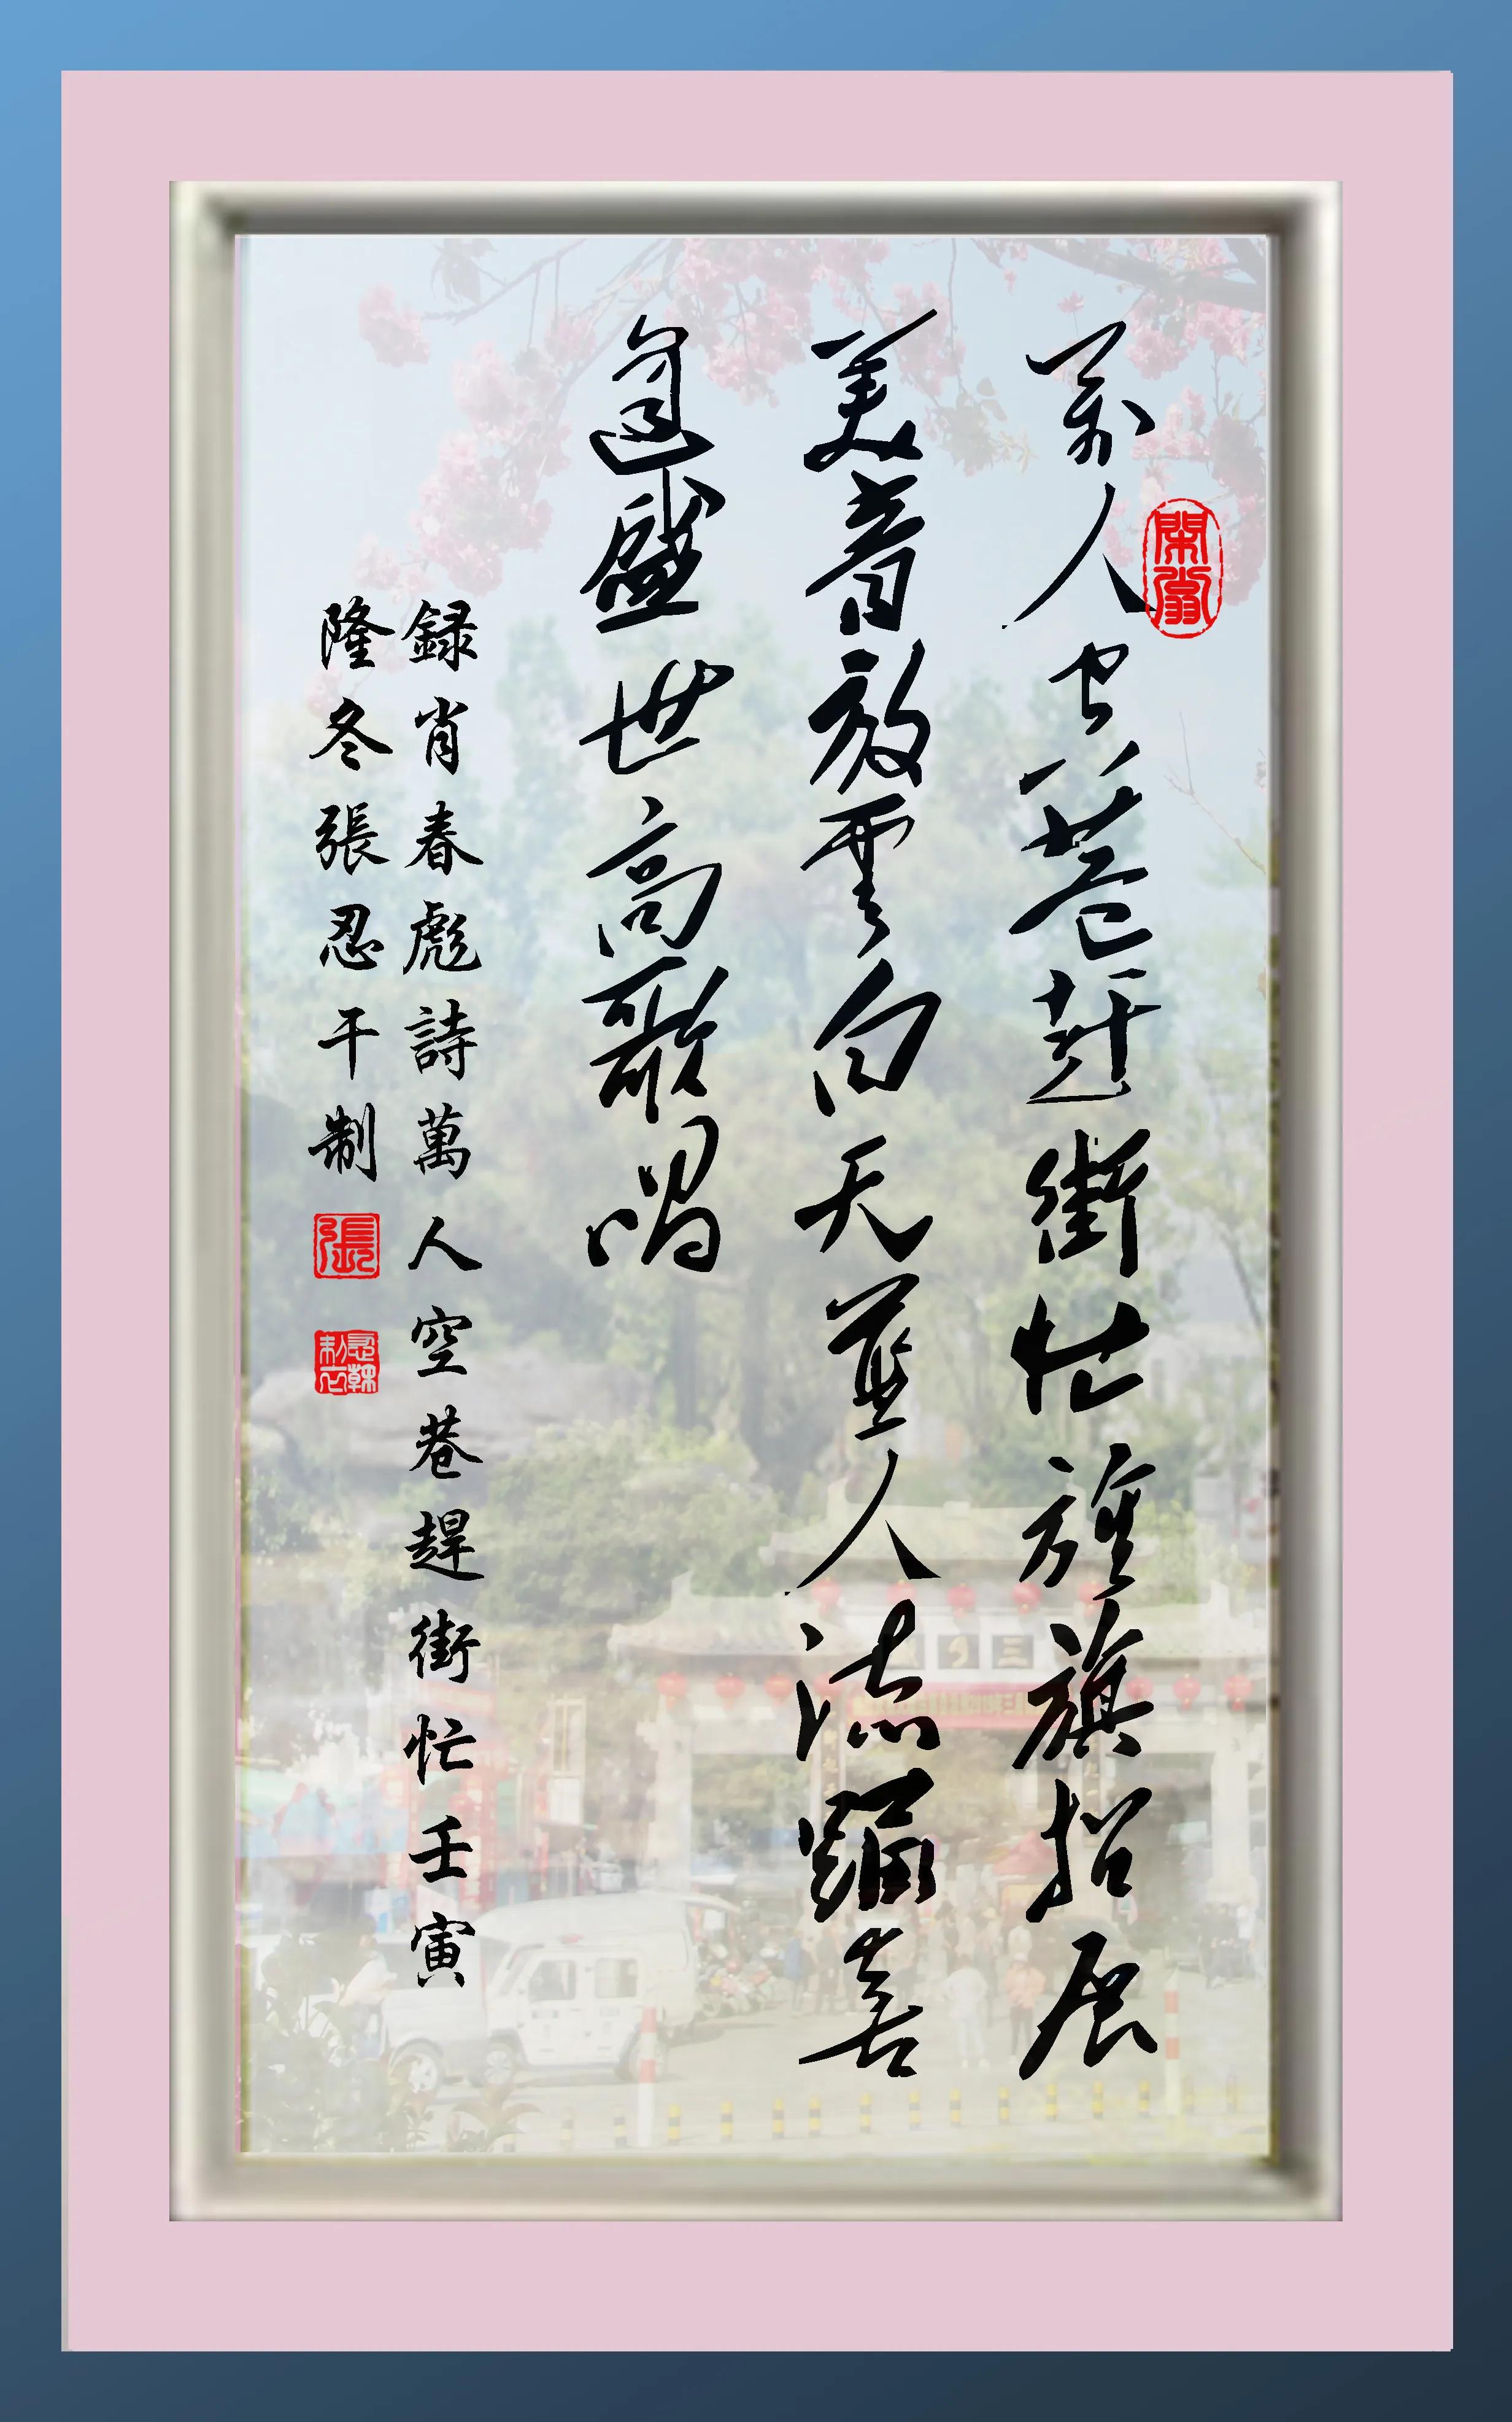 萬人空巷赶街忙旌旗招展
美音放雲白天藍人流喜
逢盛世高歌唱
録肖春彪詩萬人空巷趕街忙壬寅
隆冬張忍干制
張